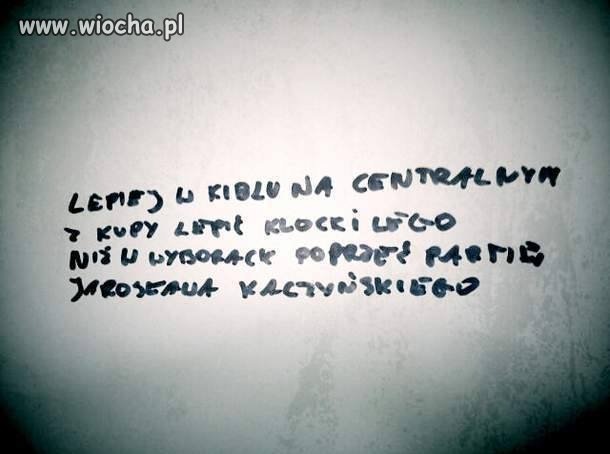 www.wiocha.pl
LEPIEJ W KIBLU NA CENTRALNYM
Z KUPY LEPIĆ KLOCKI LEGO
NIŻ W WYBORACH POPRZEĆ PARTIĘ
JAROSŁAWA KACZYŃSKIEGO